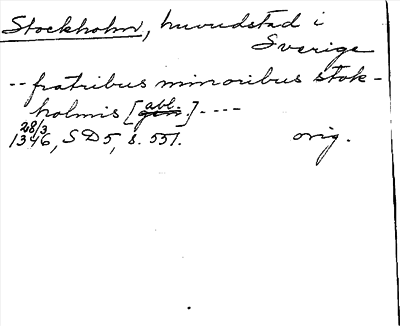 Stockholm, huvudstad i
Sverige
-- fratribus minoribus stok-
holmis [gen. abl.] ----
28/3
1346, SD5, s. 551.   orig.